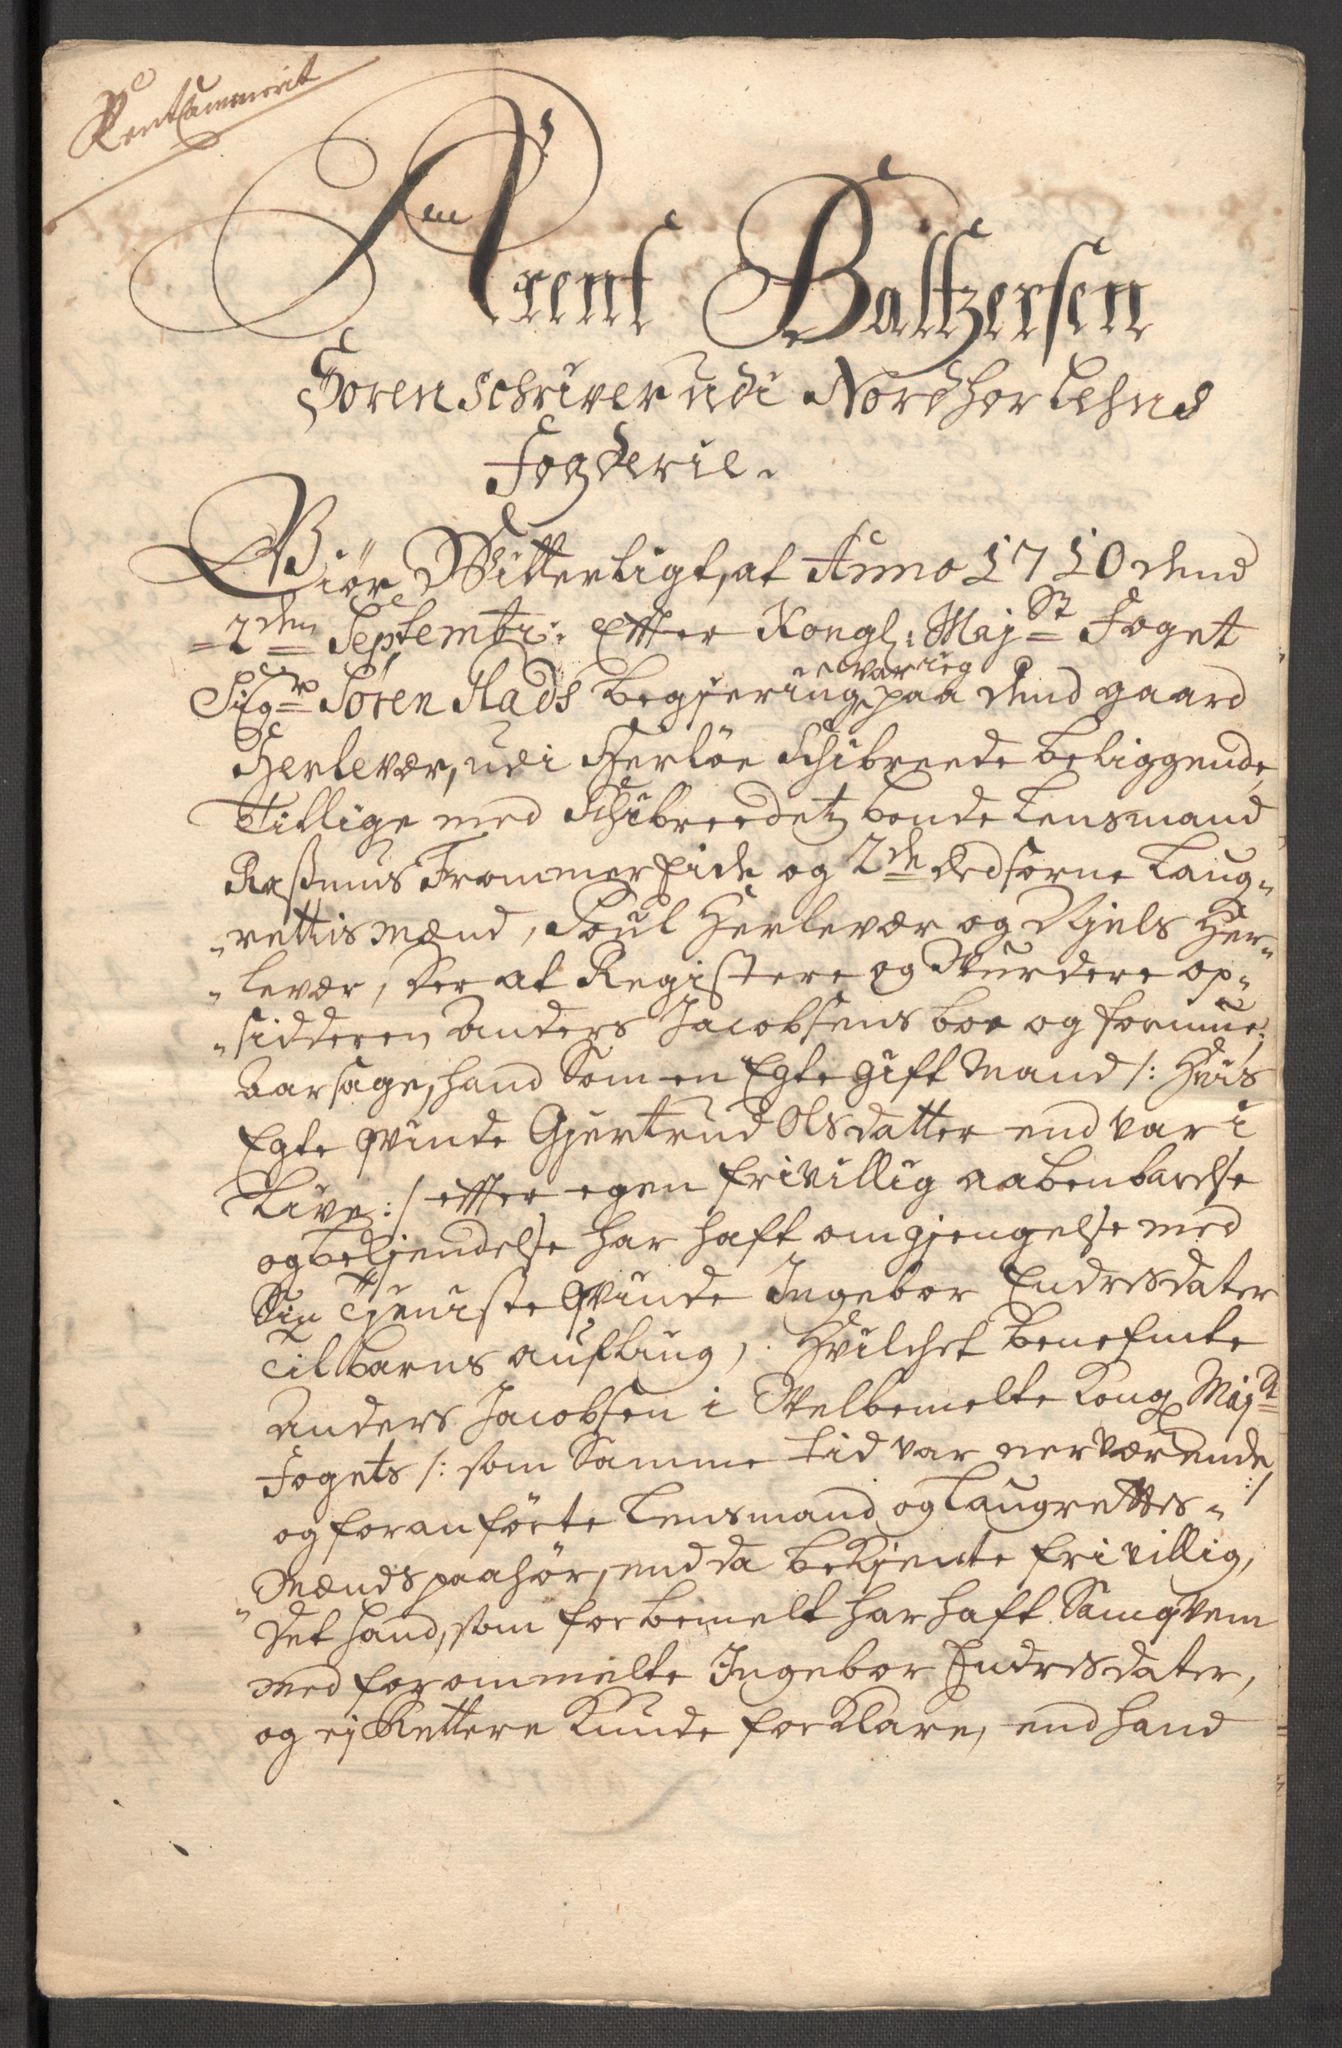 Rentcammerit
Arent Baltzersen
Sorenschriver udi Nordhorlehns
Fogderie.
Giør Witterligt, at Anno 1710 dend
2den Septembr: Efter Kongl: Majst Foget
Sigr Søren Stads begjering, var ieg paa dend gaard
Herlevær, udi Herløe Schibreede beliggende,
Tillige med Schibreedetz bonde Lensmand
Rasmus Frommereide og 2de Eedsorne Laug-
rettis Mænd, Poul Herlevær og Njels Her-
levær, der at Registere og Wurdere op-
sidderen Anders Jacobsens boe og formue,
Aarsage, hand Som en Egte gift Mand /: Hvis
Egte qvinde Gjertrud Olsdatter end var i
Live :/ efter egen frivillig aabenbarelse
og bekjendelse har haft omgjengelse med
Sin Tjeniste qvinde Ingebor Endresdater
Til barns aufling, Hvilchet benefnte
Anders Jacobsen i Welbemelte Kongl Majst
Fogets /: som Samme tid var nerværende :/
og foranførte Lensmand og Laugrettes-
Mænds paahør, end da bekjente frivillig,
Det hand, som forbemelt har haft Samqvem
med forommelte Ingebor Endresdater,
og ej Rettere Kunde forklare, end hand